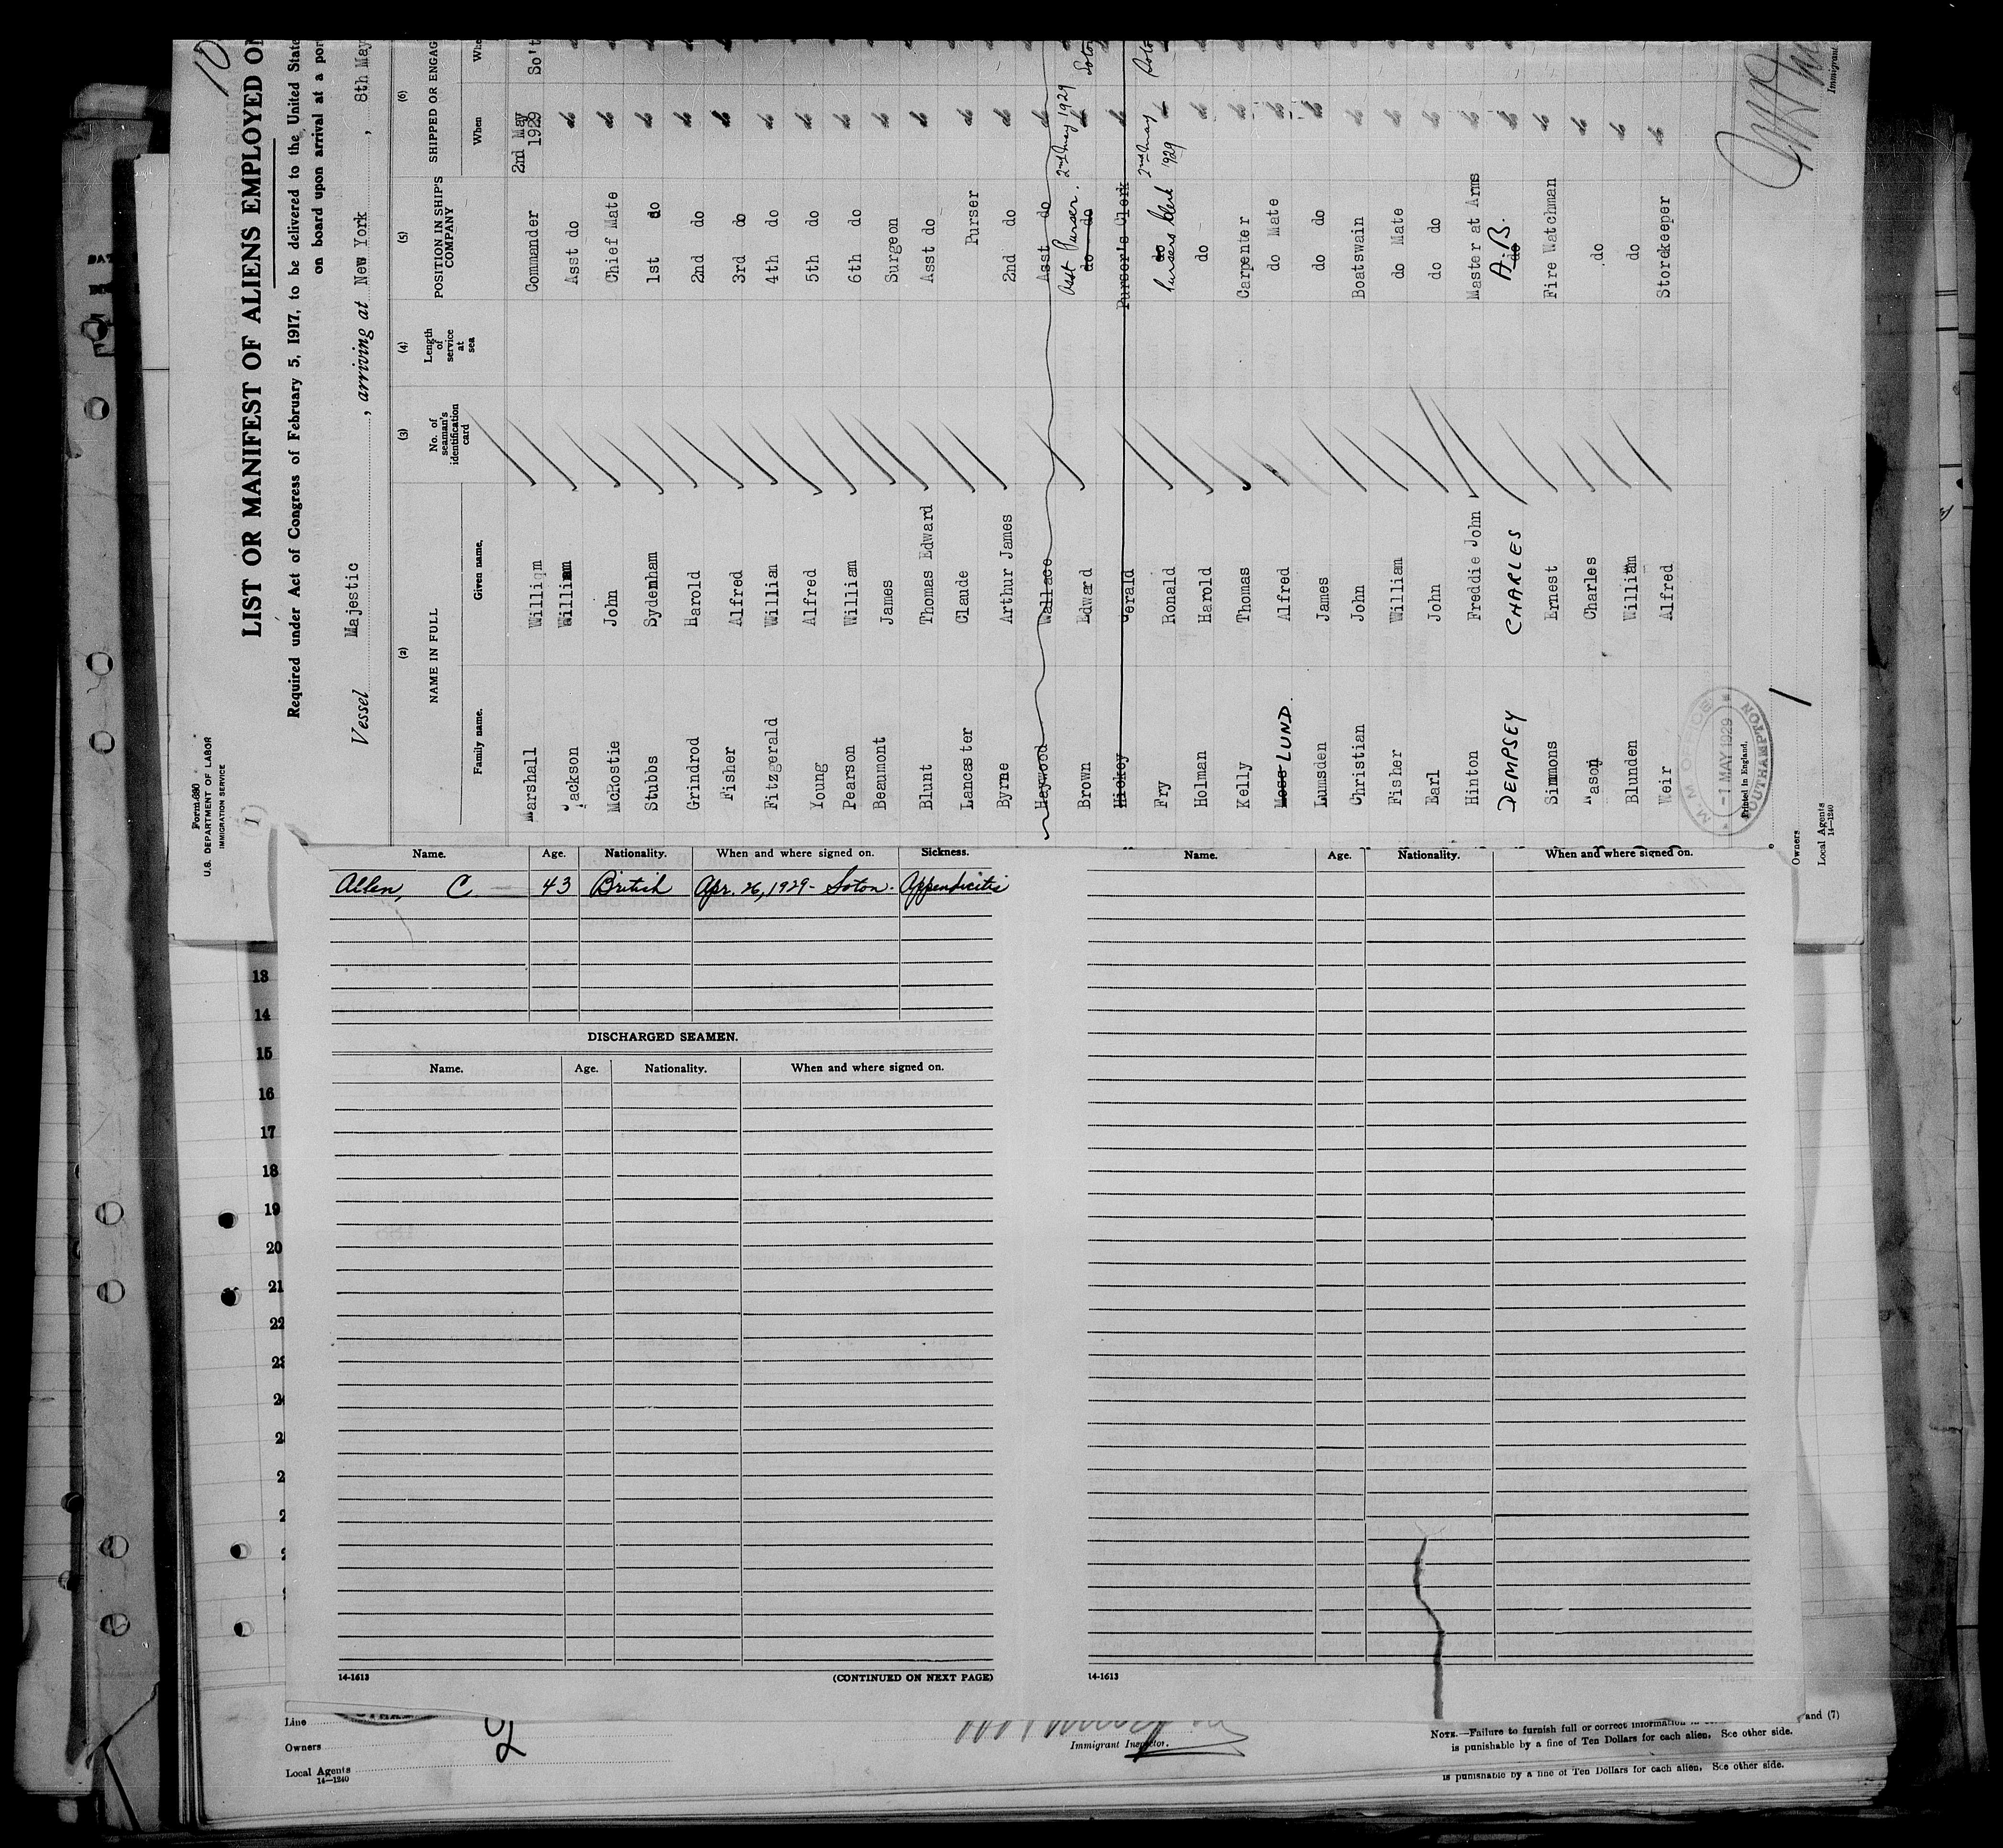 10
Form 690
U.S. DEPARTMENT OF LABOR
IMMIGRATION SERVICE
LIST OR MANIFEST OF ALIENS EMPLOYED
Required under Act of Congress of February 5, 1917, to be delivered to the United
on board upon arrival at a
Vessel Majestic, arriving at New York, 8th May
(2) (3) (4) (5) (6)
NAME IN FULL No. of seaman's identification card Length of service at sea POSITION IN SHIP'S COMPANY SHIPPED OR
Family name. Given name. When
Marshall William Commander 2nd May 1929 So't
Jackson William Asst do do
McRostie John Chief Mate do
Stubbs Sydenham 1st do do
Grindrod Harold 2nd do do
Fisher Alfred 3rd do do
Fitzgerald William 4th do do
Young Alfred 5th do do
Pearson William 6th do do
Beaumont James Surgeon do
Blunt Thomas Edward Asst do do
Lancaster Claude Purser do
Byrne Arthur James 2nd do do
Haywood Wallace Asst do do
Brown Edward do do Asst Purser. 2nd May 1929 Soton
Hickey Gerald Purser's Clerk do
Fry Ronald do Pursers Clerk 2nd May 1929 Soton
Holman Harold do do
Kelly Thomas Carpenter do
Moss LUND. Alfred do Mate do
Lumsden James do do do
Christian John Boatswain do
Fisher William do Mate do
Earl John do do do
Hinton Freddie John Master at Arms do
DEMPSEY CHARLES do A.B. do
Simmons Ernest Fire Watchman do
Mason Charles do do
Blunden William do do
Weir Alfred Storekeeper do
M. M. OFFICE
-1 MAY 1929
SOUTHAMPTON
Printed in England.
1
Owners
Local Agents
14—1240
Immigrant
Name. Age. Nationality. When and where signed on. Sickness.
Allen, C. 43 British Apr. 26, 1929 - Soton. Appendicitis
DISCHARGED SEAMEN.
Name. Age. Nationality. When and where signed on.
14-1613 (CONTINUED ON NEXT PAGE)
Name. Age. Nationality. When and where signed on.
14-1613
13
14
15
16
17
18
19
20
21
22
Line
Owners 2
Local Agents
14—1240
Immigrant Inspector.
and (7)
NOTE.—Failure to furnish full or correct information
is punishable by a fine of Ten Dollars for each alien. See other side.
is punishable by a fine of Ten Dollars for each alien. See other side.